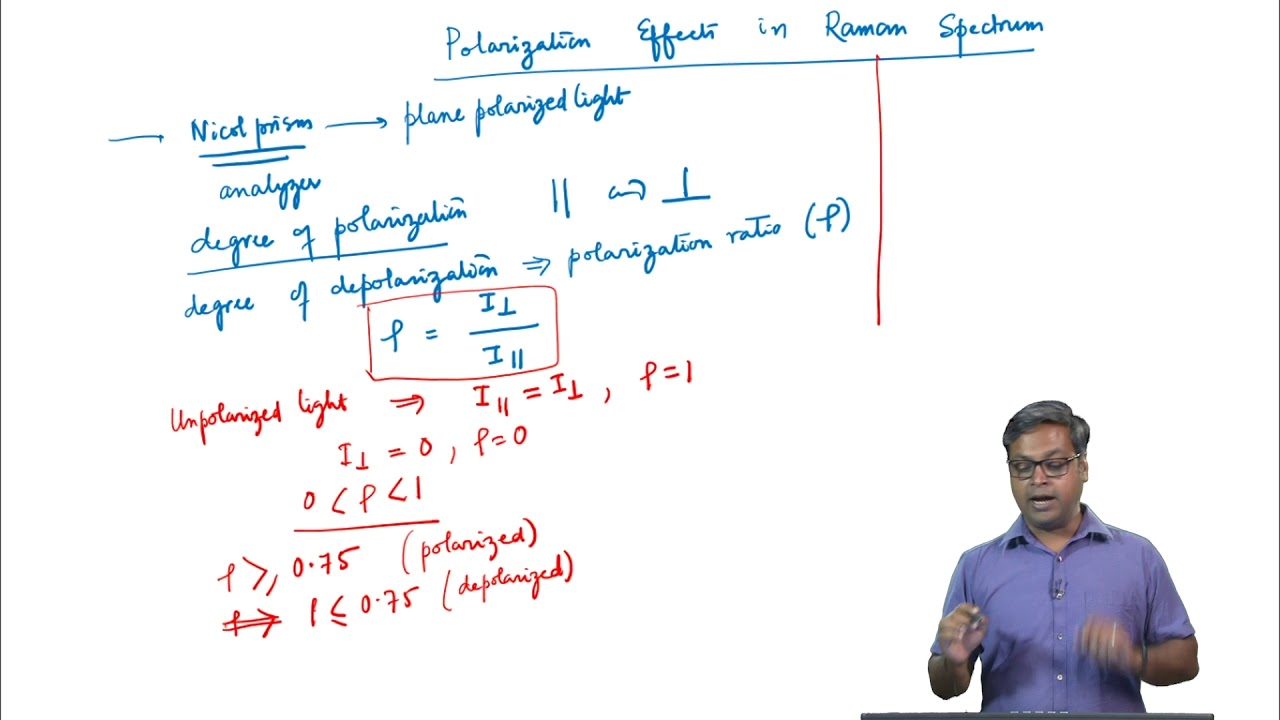 Polarization Effects in Raman Spectrum
→ Nicol prism → plane polarized light
analyzer
degree of polarization || and ⊥
degree of depolarization ⇒ polarization ratio (ρ)
ρ = I⊥ / I||
Unpolarized light ⇒ I|| = I⊥ , ρ = 1
I⊥ = 0 , ρ = 0
0 < ρ < 1
ρ ≥ 0.75 (polarized)
ρ ≤ 0.75 (depolarized)